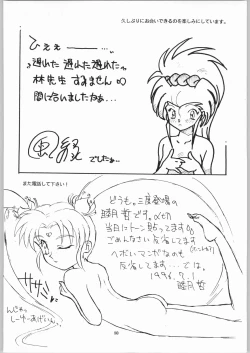 久しぶりにお会いできるのを楽しみにしています。
ひええーー…。
遅れた遅れた遅れた〜
林先生 すみません
間に合いましたかぁ…
でしたぁ…
また電話して下さい！
どうも。三度登場の
睦月哲です。
当日にトン貼ってます
ごめんなさい反省してます
ヘボいマンガなのも
反省してます……では。
1996.7.1
睦月哲
ササッ
にんじゃ
しーゆーあげいん。
88